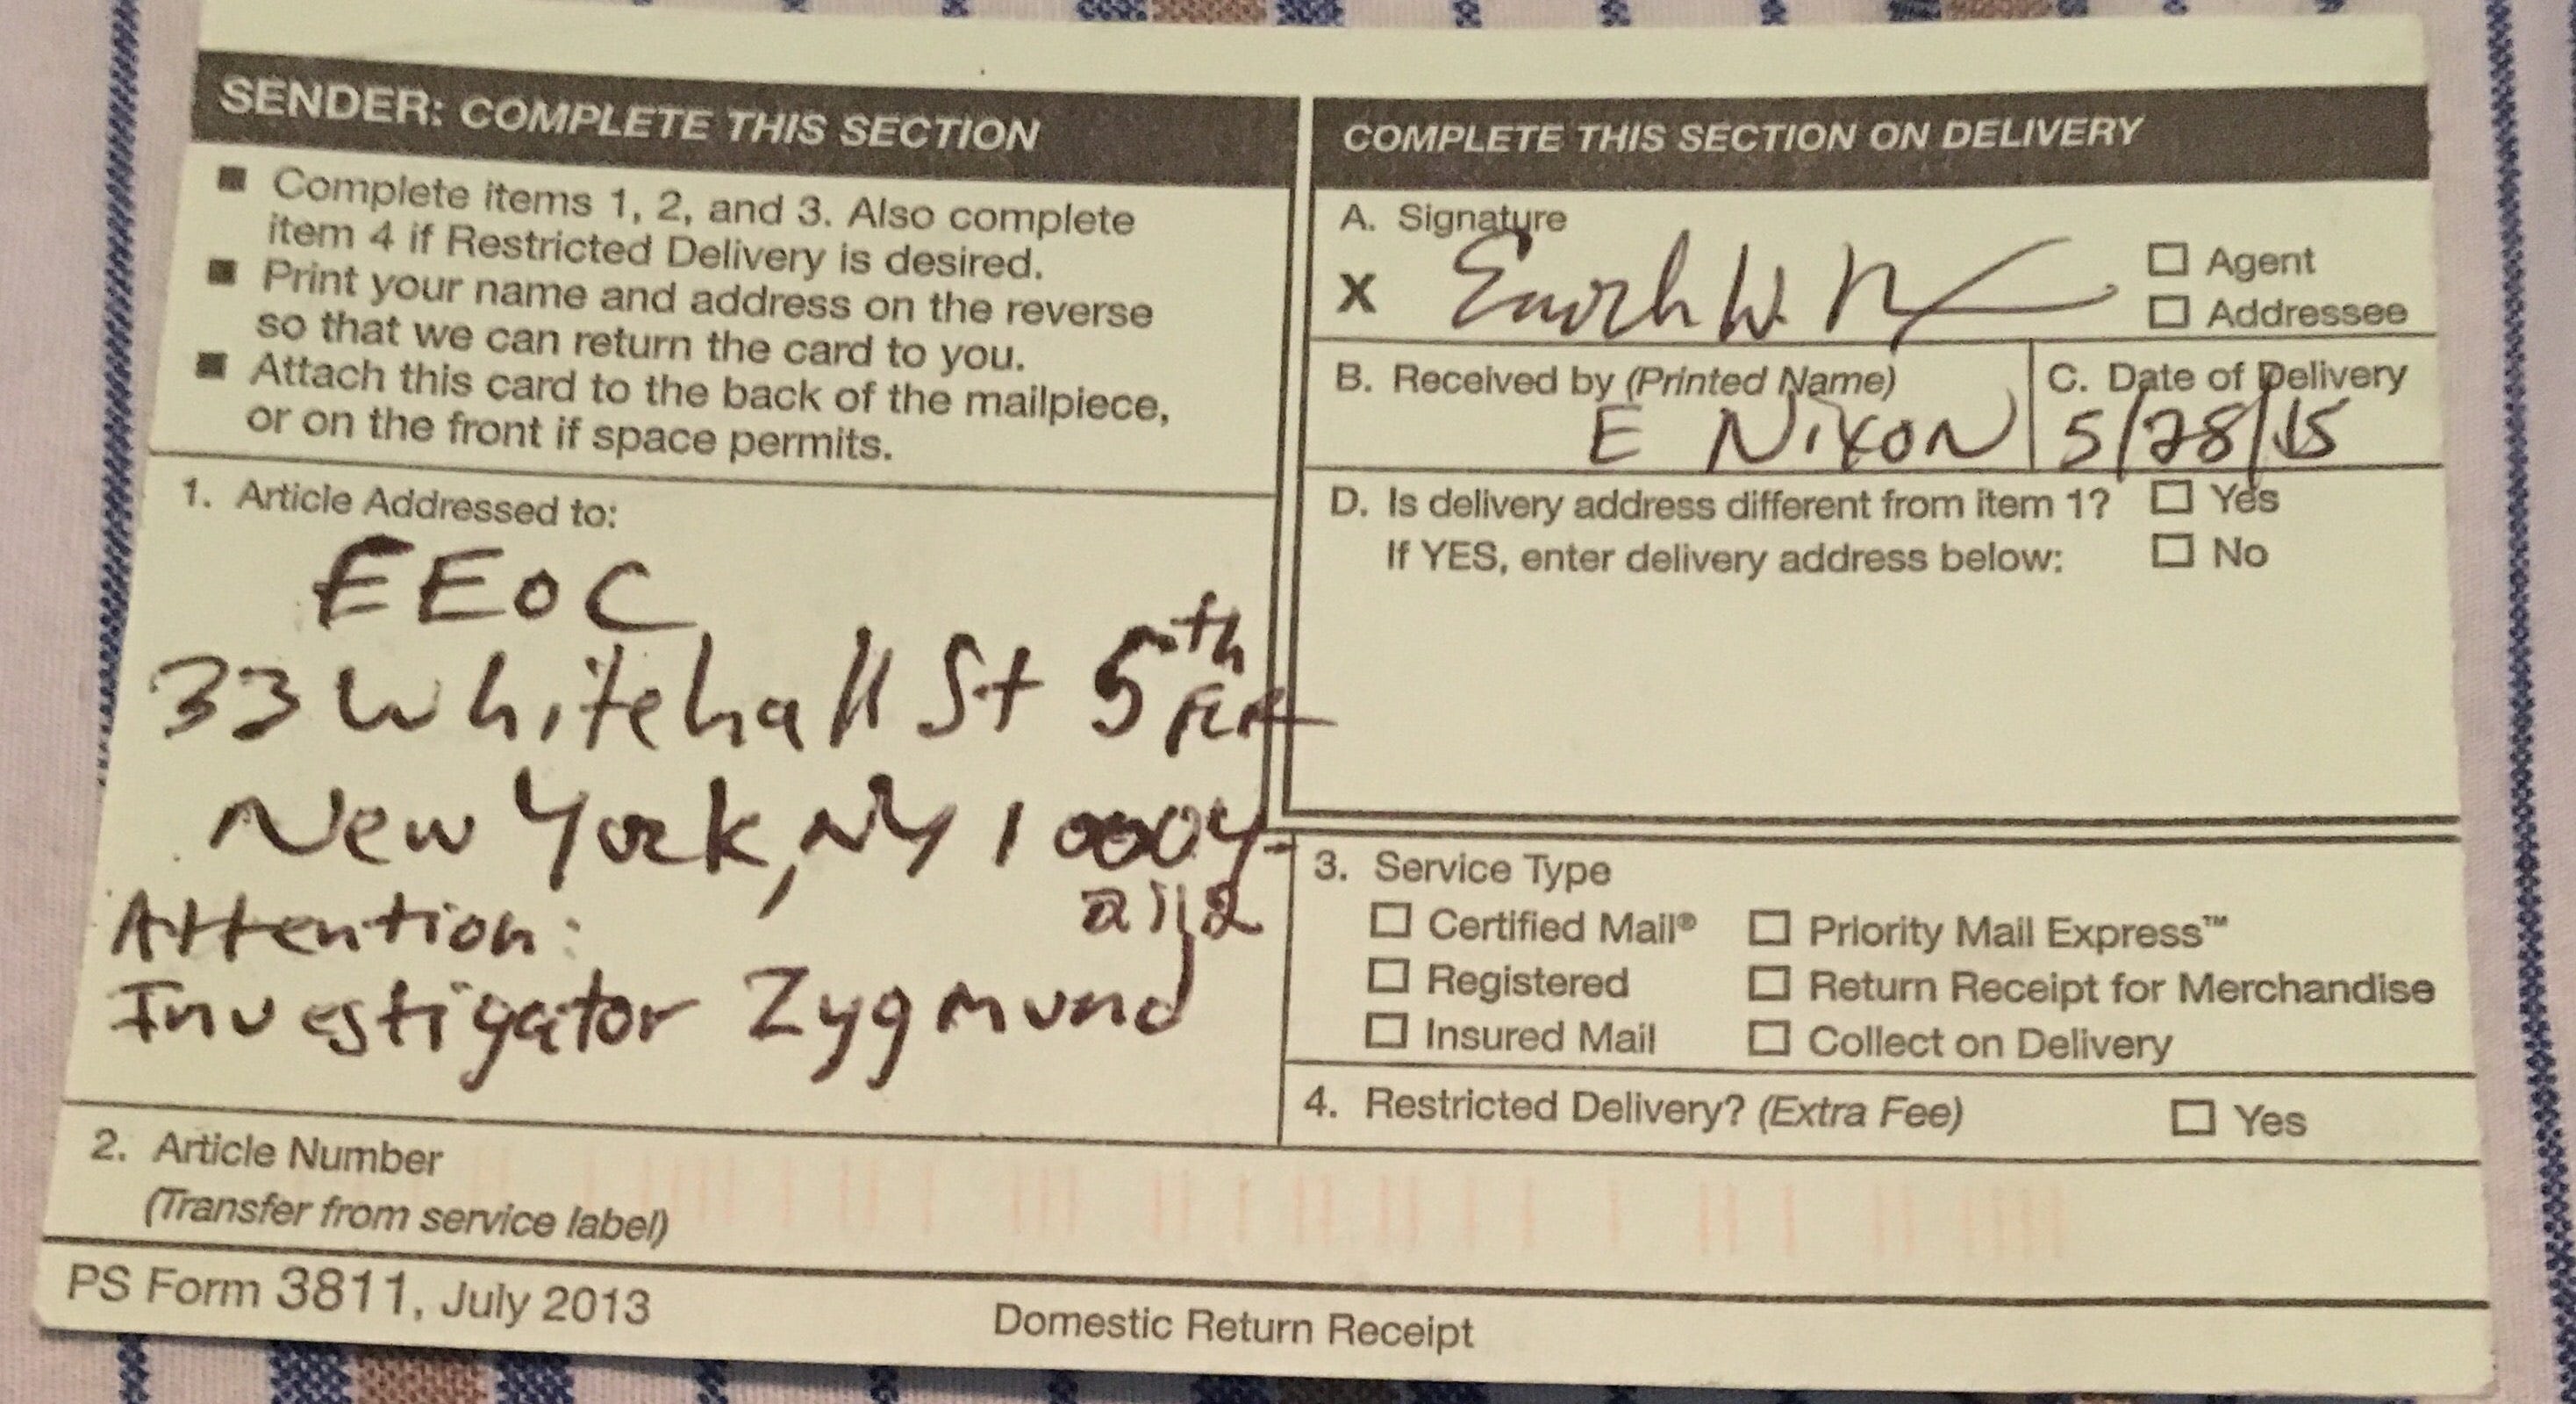 SENDER: COMPLETE THIS SECTION
■ Complete items 1, 2, and 3. Also complete
item 4 if Restricted Delivery is desired.
■ Print your name and address on the reverse
so that we can return the card to you.
■ Attach this card to the back of the mailpiece,
or on the front if space permits.
1. Article Addressed to:
EEOC
33 Whitehall St 5th
New York, NY 10004-
2112
Attention:
Investigator Zygmund
2. Article Number
(Transfer from service label)
COMPLETE THIS SECTION ON DELIVERY
A. Signature
X
☐ Agent
☐ Addressee
B. Received by (Printed Name)
E Nixon
C. Date of Delivery
5/28/15
D. Is delivery address different from item 1? ☐ Yes
If YES, enter delivery address below: ☐ No
3. Service Type
☐ Certified Mail® ☐ Priority Mail Express™
☐ Registered ☐ Return Receipt for Merchandise
☐ Insured Mail ☐ Collect on Delivery
4. Restricted Delivery? (Extra Fee) ☐ Yes
PS Form 3811, July 2013
Domestic Return Receipt